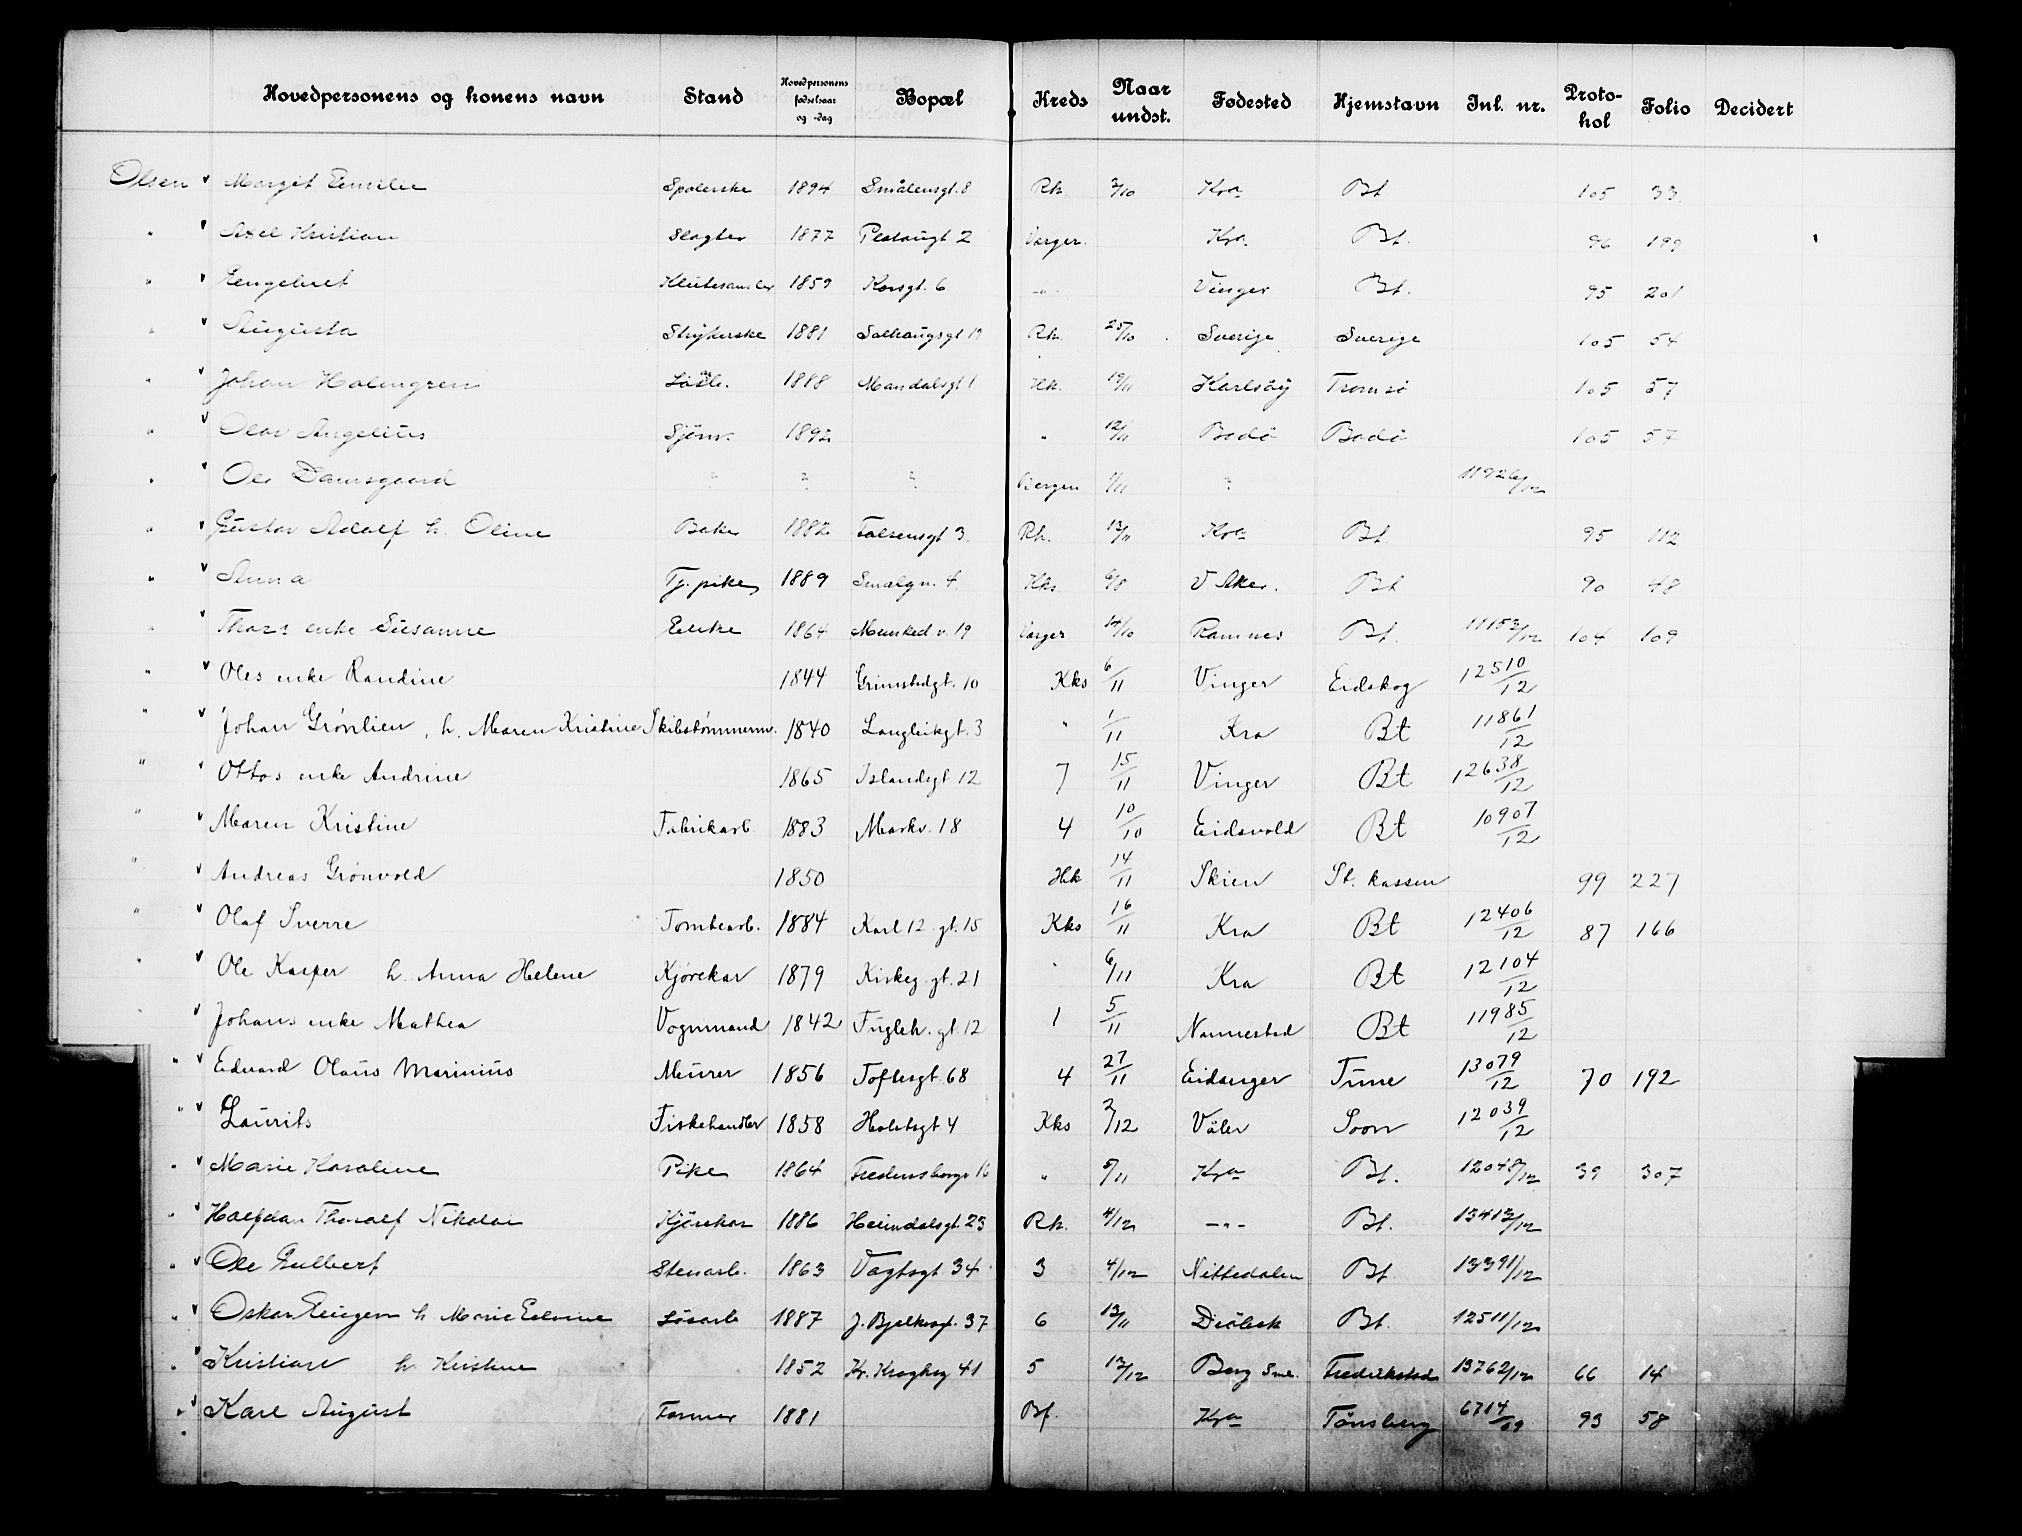 Hovedpersonens og konens navn Stand Hovedpersonens fødselsaar og -dag Bopæl Kreds Naar undst. Fødested Hjemstavn Inl. nr. Proto-kol Folio Decidert
Olsen Margit Emilie Spolerske 1894 Smålensgt. 8 Rk. 3/10 Kra Bt 105 33
" Axel Kristian Slagter 1877 Platougt 2 Varger. Kra Bt. 96 199
" Engebret Klutesamler 1859 Korsgt. 6 -"- Vinger Bt. 95 201
" Augusta Strykerske 1881 Solhaugsgt 19 Rk. 25/10 Sverige Sverige 105 54
" Johan Holmgren Løsb. 1888 Mandalsgt 1 Hk. 19/11 Karlsøy Tromsø 105 57
" Olav Angelius Sjøm. 1892 " 12/11 Bodø Bodø 105 57
" Ole Damsgaard ? ? ? Bergen 1/11 ? 11926/12
" Gustav Adolf h. Oline Baker 1882 Falsensgt 3. Rk. 13/11 Kra Bt. 95 112
" Anna Tj. pike 1889 Smalgn. 4 Kks 6/8 V Aker. Bt 90 48
" Thors enke Susanne Enke 1864 Munked v. 19 Varger 14/10 Ramnes Bt. 11153/12 104 109
" Oles enke Randine 1844 Grimstadgt. 10 Kks 6/11 Vinger Eidskog 12510/12
" Johan Grønlien, h. Maren Kristine Skibstømmerm. 1840 Langleiksgt. 3 " 1/11 Kra Bt 11861/12
" Ottos enke Andrine 1865 Islandsgt 12 7 15/11 Vinger Bt 12638/12
" Maren Kristine Fabrikarb 1883 Markv. 18 4 10/10 Eidsvold Bt 10907/12
" Andreas Grønvold 1850 Hk. 14/11 Skien St. kassen 99 227
" Olaf Sverre Tomtearb. 1884 Karl 12 gt. 15 Kks 16/11 Kra Bt 12406/12 87 166
" Ole Kasper h. Anna Helene Kjørekar 1879 Kirkeg. gt. 21 " 6/11 Kra Bt 12104/12
Johans enke Mathea Vognmand 1842 Fugleh. gt. 12 1 5/11 Nannestad Bt 11985/12
" Edvard Olaus Marinius Murer 1856 Toftesgt. 68 4 27/11 Eidanger Tune 13079/12 70 192
" Laurits Fiskehandler 1858 Holstsgt 4 Kks 2/12 Våler Soon 12039/12
" Marie Karoline Pike 1864 Fredensborgv 16 " 5/11 Kra Bt. 12048/12 39 307
" Halfdan Thoralf Nikolai Kjørekar 1886 Heimdalsgt. 23 Rk. 4/12 -"- Bt. 13413/12
" Ole Gulbert Stenarb. 1863 Vogtsgt 34 3 4/12 Nittedalen Bt 13391/12
" Oskar Eugen h Marie Elvine Løsarb 1887 J. Bjelkesgt. 37 6 13/11 Drøbak Bt. 12511/12
" Kristian h. Kristine 1852 Kr. Kroghsg 41 5 13/12 Berg Sml. Fredrikstad 13762/12 66 14
" Karl August Former 1881 Bf. Kra Tønsberg 6714/09 93 58
"